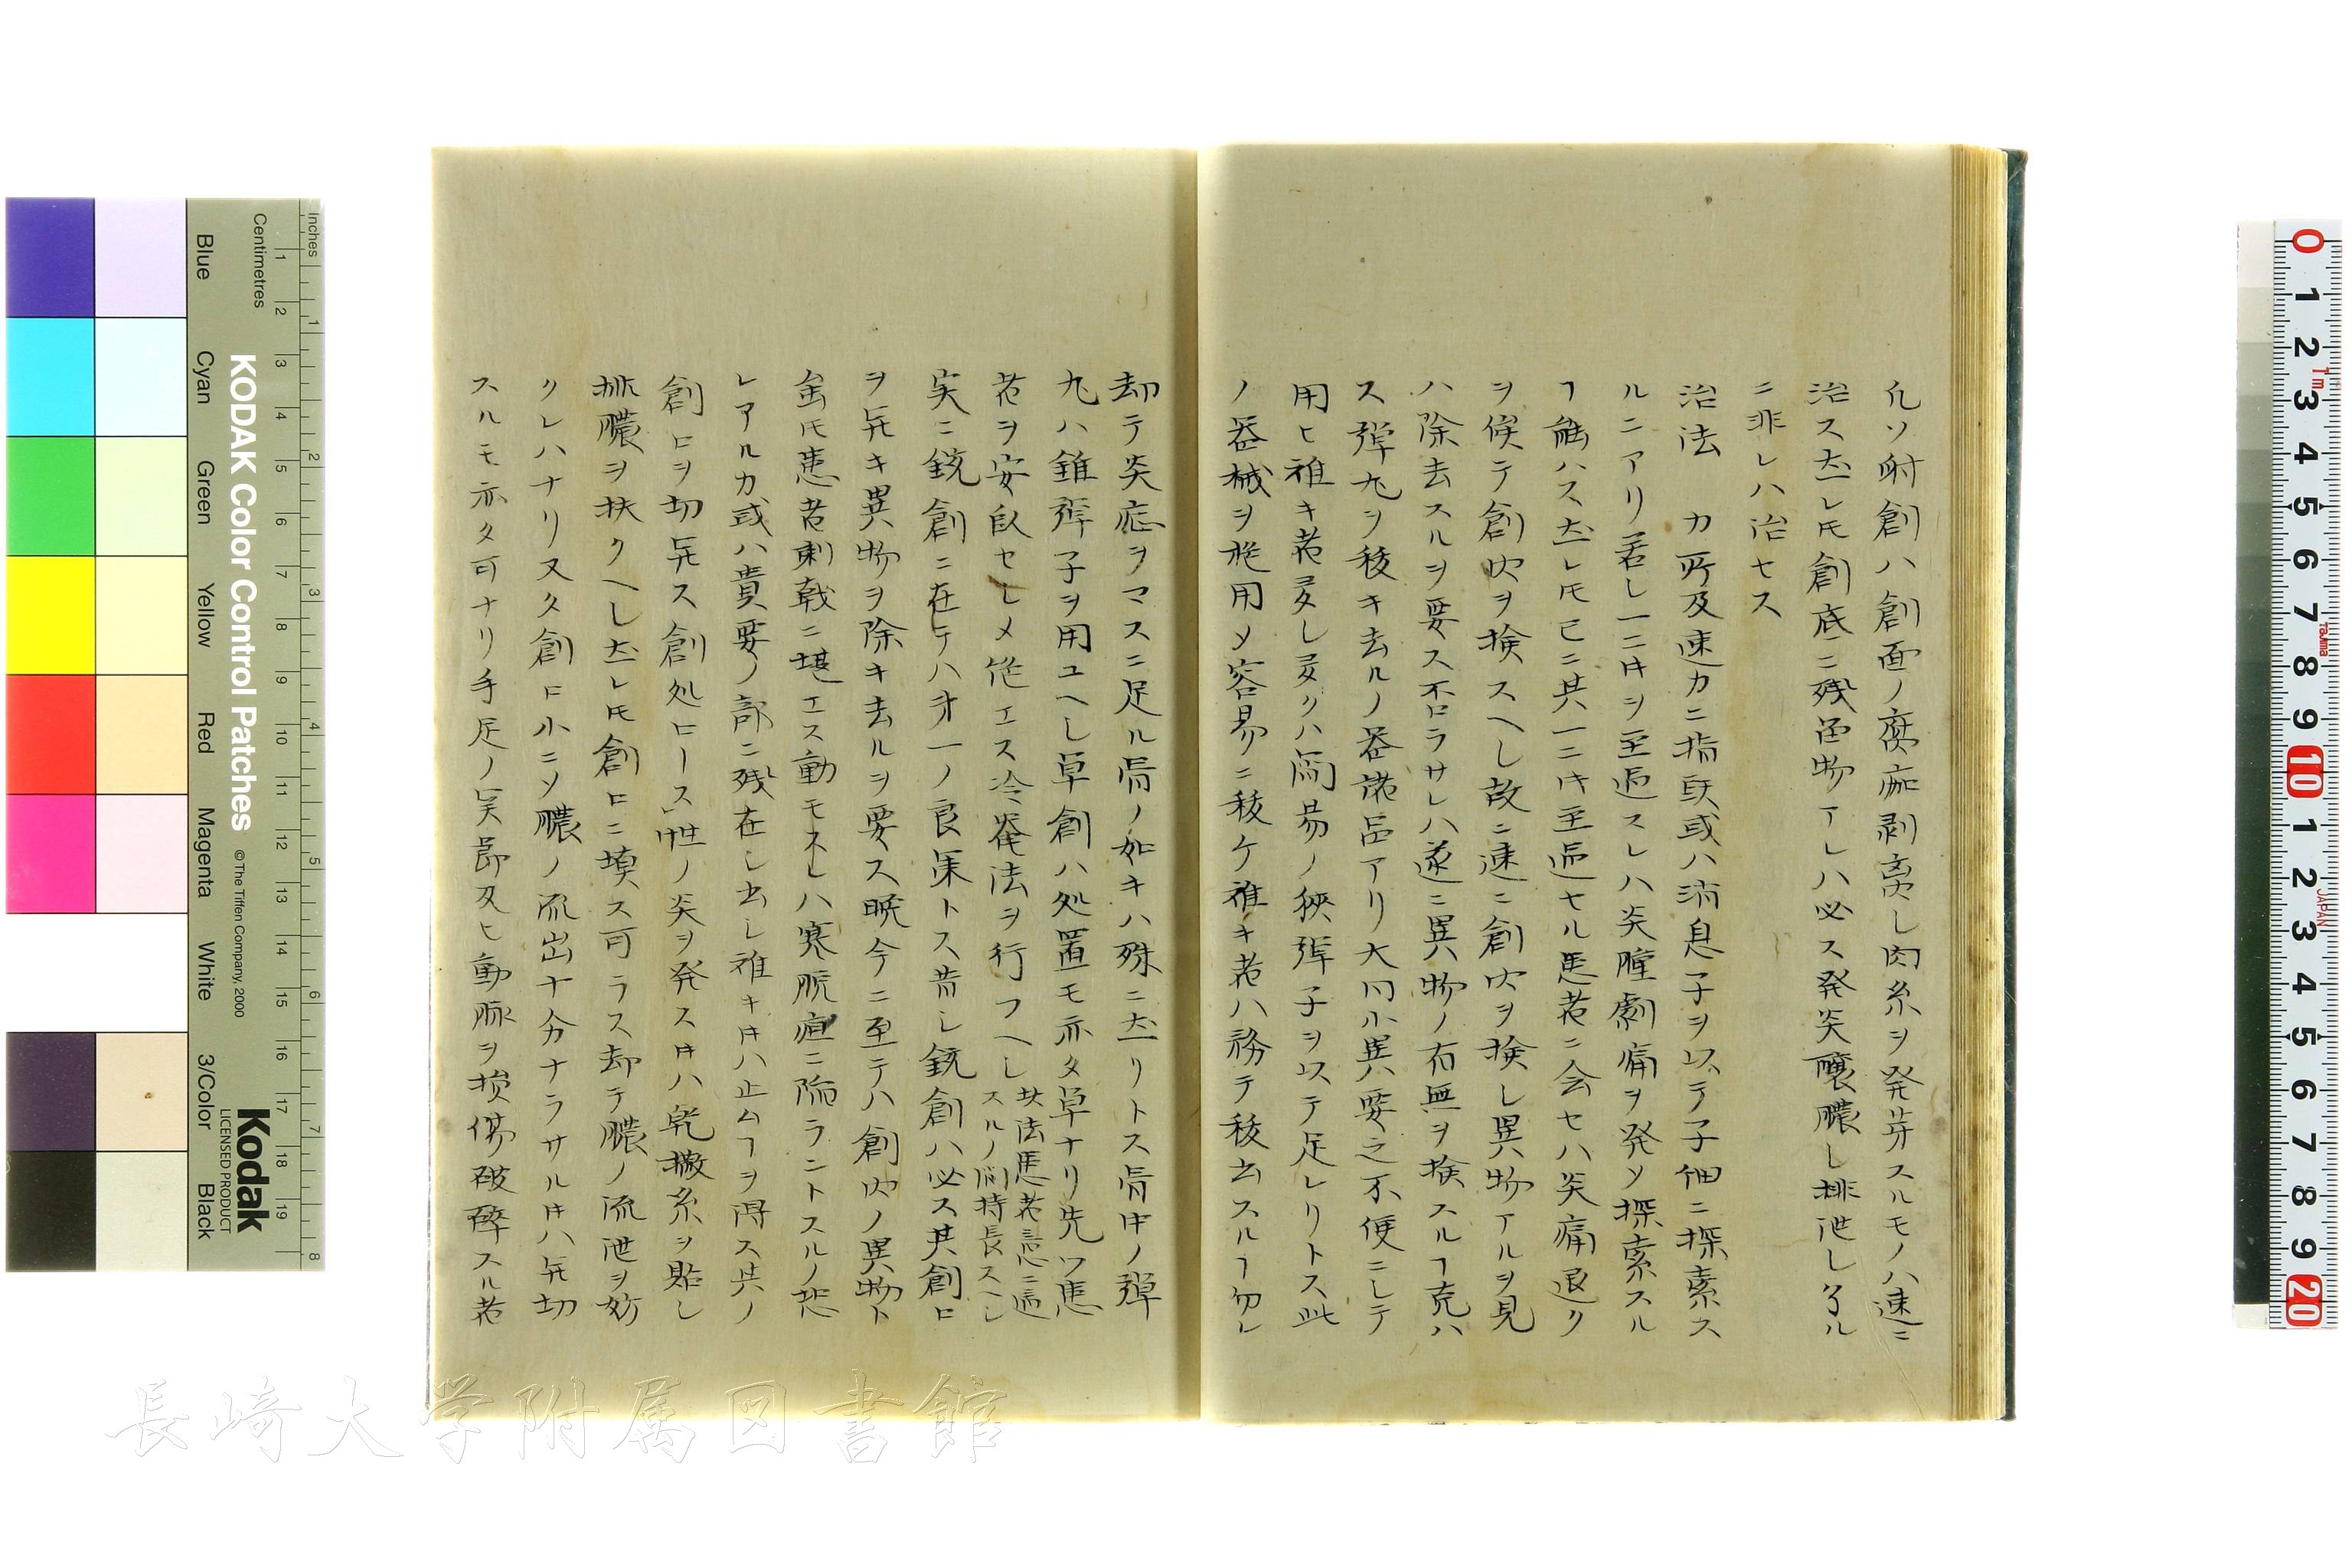 凡ソ射創ハ創面ノ腐痂剥离シ肉糸ヲ発芽スルモノハ速ニ
治ス𪜈創底ニ残留物アレハ必ス発炎醸膿シ排泄シ了ル
ニ非レハ治セス
治法 力所及速カニ指頭或ハ消息子ヲ以テ子細ニ探索ス
ルニアリ若シ一二日ヲ至過スレハ炎腫劇痛ヲ発シ探索スル
ヿ能ハス𪜈已ニ其一二日至過セル患者ニ会セハ炎痛退ク
ヲ候テ創内ヲ検スヘし故ニ速ニ創内ヲ検シ異物アルヲ見
ハ除去スルヲ要ス不ラサレハ遂ニ異物ノ有無ヲ検スルヿ克ハ
ス弾丸ヲ抜キ去ルノ器諸品アリ大同小異要之不便ニシテ
用ヒ雖キ者多シ多クハ簡易ノ狭弾子ヲ以テ足レリトス此
ノ器械ヲ施用メ容易ニ抜ケ雖キ者ハ務テ抜去スルヿ勿レ
却テ炎症ヲマスニ足ル骨ノ如キハ殊ニ然リトス骨中ノ弾
丸ハ錐弾子ヲ用ユヘし草創ハ処置モ亦タ草ナリ先ツ患
者ヲ安臥セシメ絶エス冷罨法ヲ行フヘし 此法患者ニ適
スルノ間持長スヘシ
実ニ銃創ニ在テハ第一ノ良策トス昔シ銃創ハ必ス其創口
ヲ开キ異物ヲ除キ去ルヲ要ス晩今ニ至テハ創内ノ異物ト
𫿞𪜈患者刺戟ニ堪エス動モスレハ寒脱疽ニ陥ラントスルノ恐
レアルカ或ハ貴要ノ部ニ残在シ去シ雖キ片ハ止ムヿヲ得ス其ノ
創口ヲ切开ス創処ローズ性ノ炎ヲ発ス片ハ乾撒糸ヲ貼シ
排膿ヲ扶クヘし𪜈創口ニ填ス可ラス却テ膿ノ流泄ヲ妨
クレハナリ又タ創口小ニソ膿ノ流出十分ナラサル片ハ开切
スルモ亦タ可ナリ手足ノ関節及ヒ動脈ヲ損傷破砕スル者
Inches
Centimetres
KODAK Color Control Patches
©The Tiffen Company, 2000
Kodak
LICENSED PRODUCT
Blue Cyan Green Yellow Red Magenta White 3/Color Black
長崎大学附属図書館